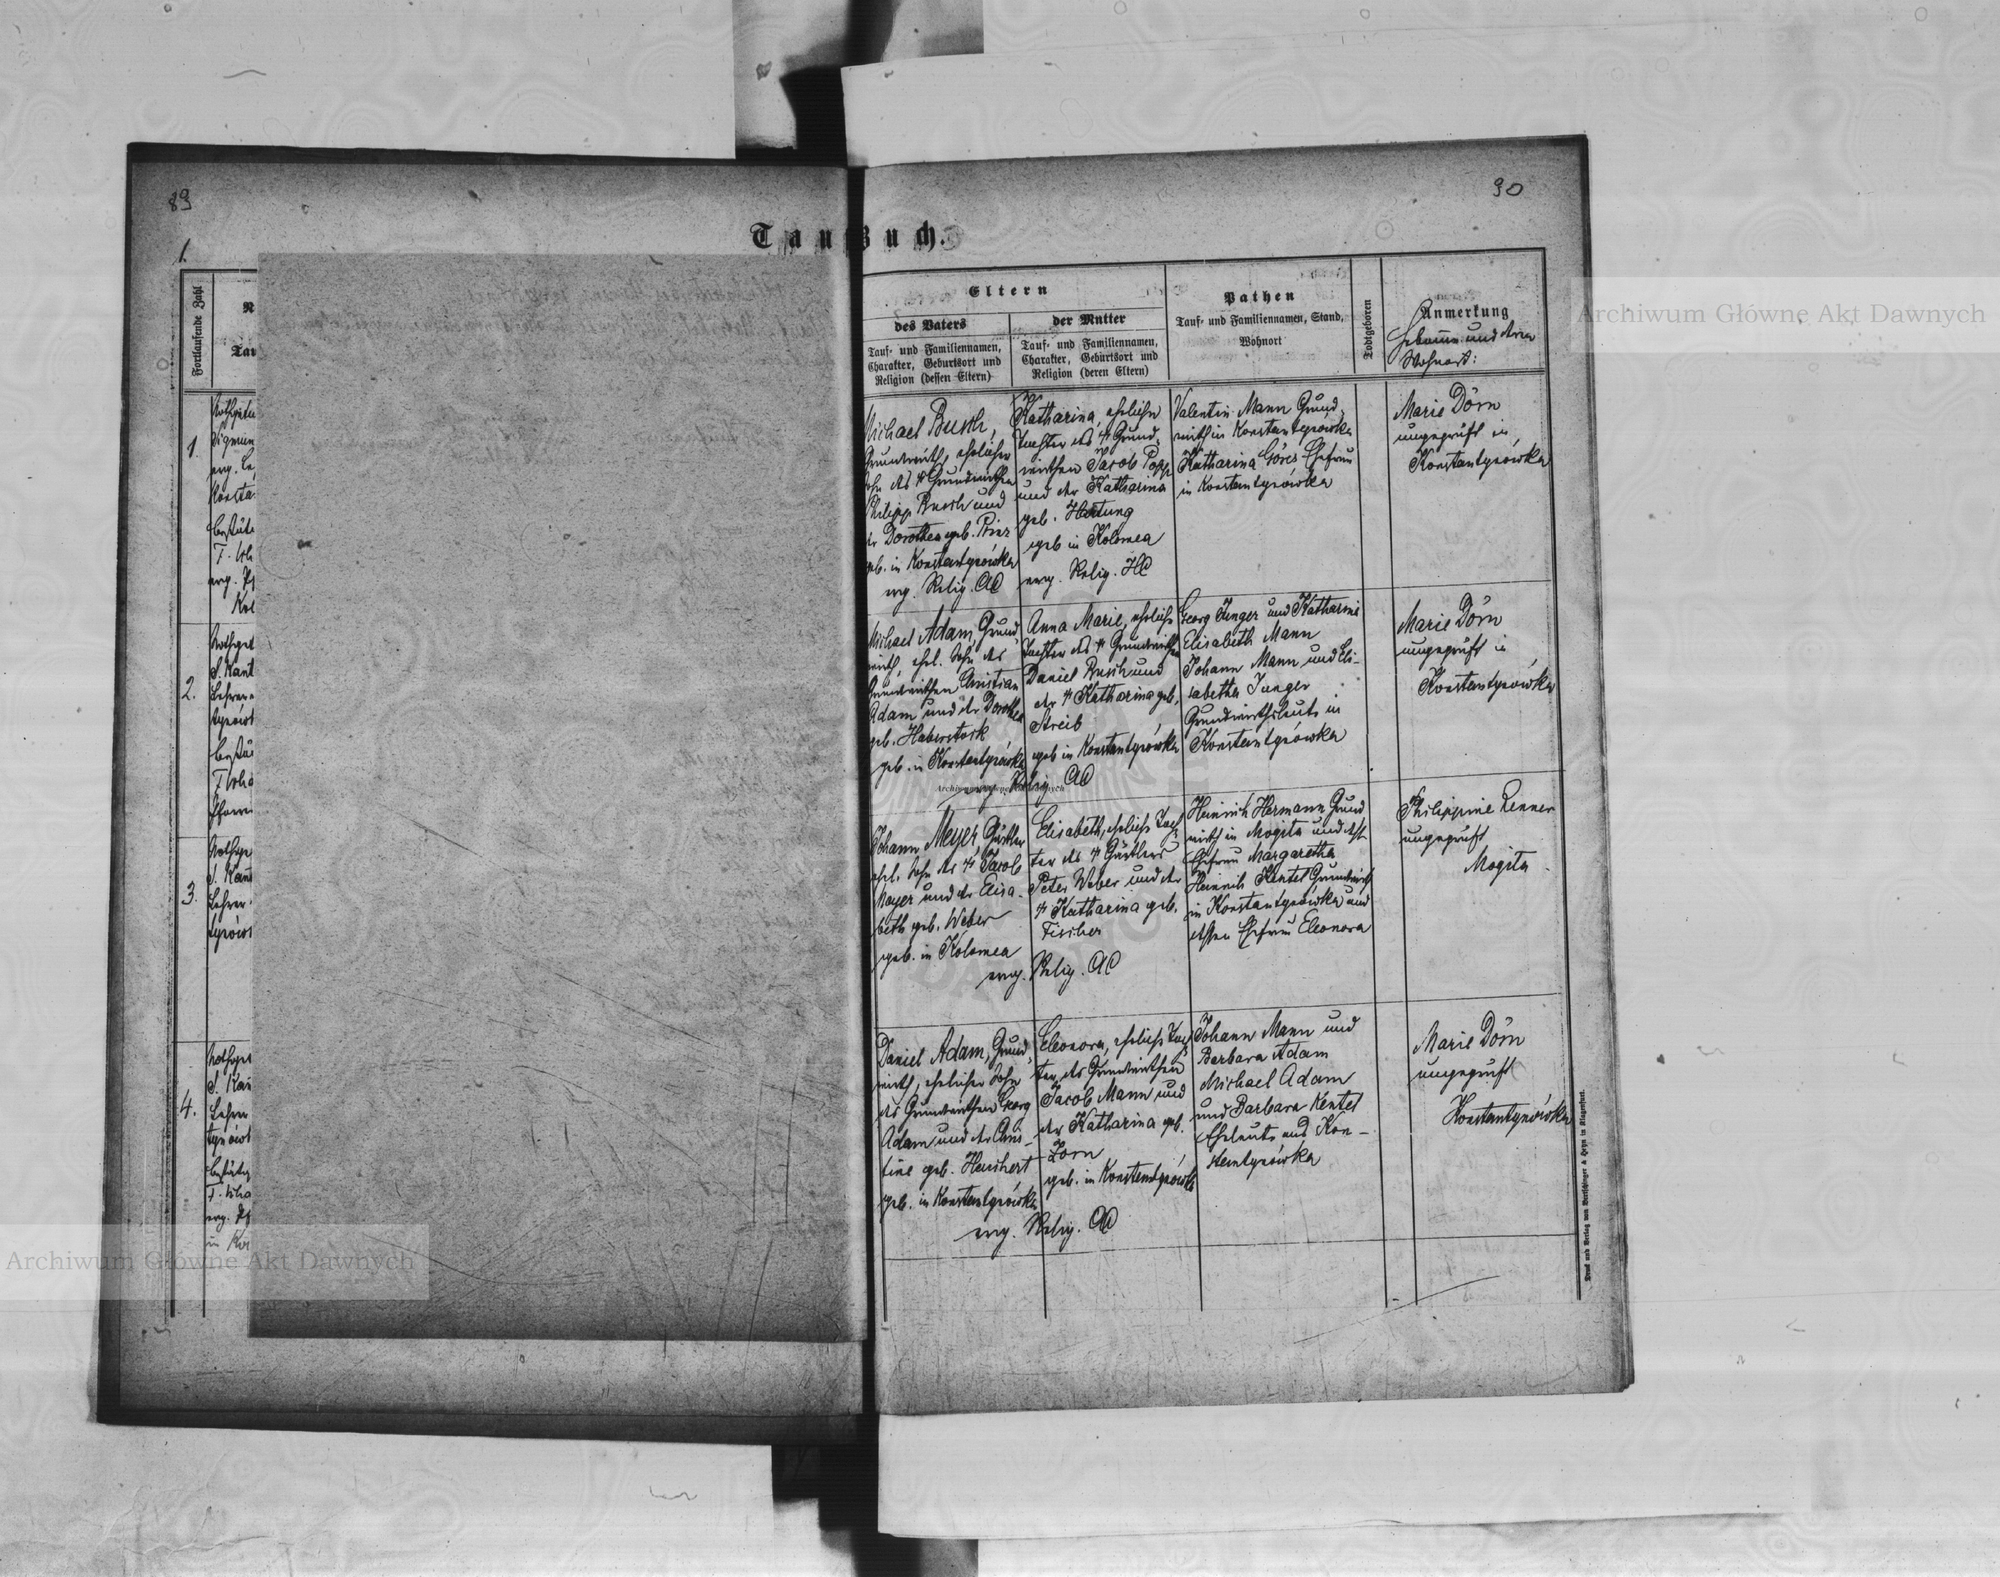 89
90
1.
Taufbuch.
Fortlaufende Zahl
Eltern
des Vaters
Tauf- und Familiennamen,
Charakter, Geburtsort und
Religion (dessen Eltern)
der Mutter
Tauf- und Familiennamen,
Charakter, Geburtsort und
Religion (deren Eltern)
Pathen
Tauf- und Familiennamen, Stand,
Wohnort
Todtgeboren
Anmerkung
Hebamme und deren
Wohnort:
1.
Michael Busch,
Grundwirth, ehelicher
Sohn des † Grundwirthen
Philipp Busch und
der Dorothea geb. Prinz
geb. in Konstantynówka
evg. Relig. AC
Katharina, eheliche
Tochter des † Grund-
wirthen Jacob Popp
und der Katharina
geb. Hartung
geb in Kolomea
evg. Relig. HC
Valentin Mann Grund-
wirth in Konstantynówka
Katharina Göres Ehefrau
in Konstantynówka
Marie Dörn
ungeprüft in
Konstantynówka
2.
Michael Adam, Grund-
wirth, ehel. Sohn des
Grundwirthen Christian
Adam und der Dorothea
geb. Haberstock
geb. in Konstantynówka
evg. Relig. AC
Anna Marie, eheliche
Tochter des † Grundwirthen
Daniel Busch und
der † Katharina geb.
Streib
geb in Konstantynówka
Georg Junger und Katharina
Elisabeth Mann
Johann Mann und Eli-
sabetha Junger
Grundwirthsleute in
Konstantynówka
Marie Dörn
ungeprüft in
Konstantynówka
3.
Johann Meyer, Gärtler
ehel. Sohn des † Jacob
Mayer und der Elisa-
beth geb. Weber
geb. in Kolomea
evg. Relig. AC
Elisabeth, eheliche Toch-
ter des † Gärtlers
Peter Weber und der
† Katharina geb.
Fischer
Heinrich Hermann Grund
wirth in Mogila und dess.
Ehefrau Margaretha
Heinrich Kentel Grundwirth
in Konstantynówka und
dessen Ehefrau Eleonora
Philippine Renner
ungeprüft
Mogila
4.
Daniel Adam, Grund-
wirth, ehelicher Sohn
des Grundwirthen Georg
Adam und der Chris-
tine geb. Heuchert
geb. in Konstantynówka
evg. Relig. AC
Eleonora, eheliche Toch-
ter des Grundwirthen
Jacob Mann und
der Katharina geb.
Zorn
geb. in Konstantynówka
Johann Mann und
Barbara Adam
Michael Adam
und Barbara Kentel
Eheleute aus Kon-
stantynówka
Marie Dörn
ungeprüft
Konstantynówka
Druck und Verlag von Bertschinger & Heyn in Klagenfurt.
Archiwum Główne Akt Dawnych
Archiwum Główne Akt Dawnych
Archiwum Główne Akt Dawnych